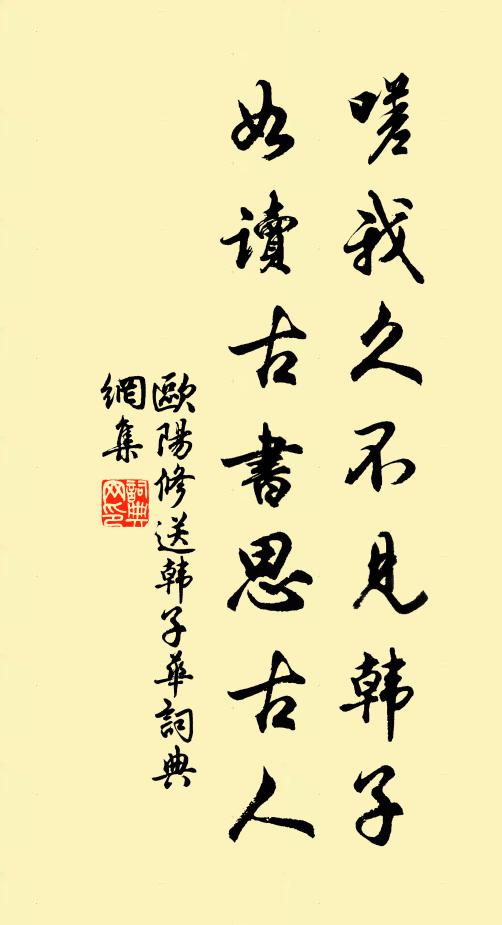 嗟我久不見韩子
如讀古書思古人
歐陽修送韩子華詞典
網集
詞典网印